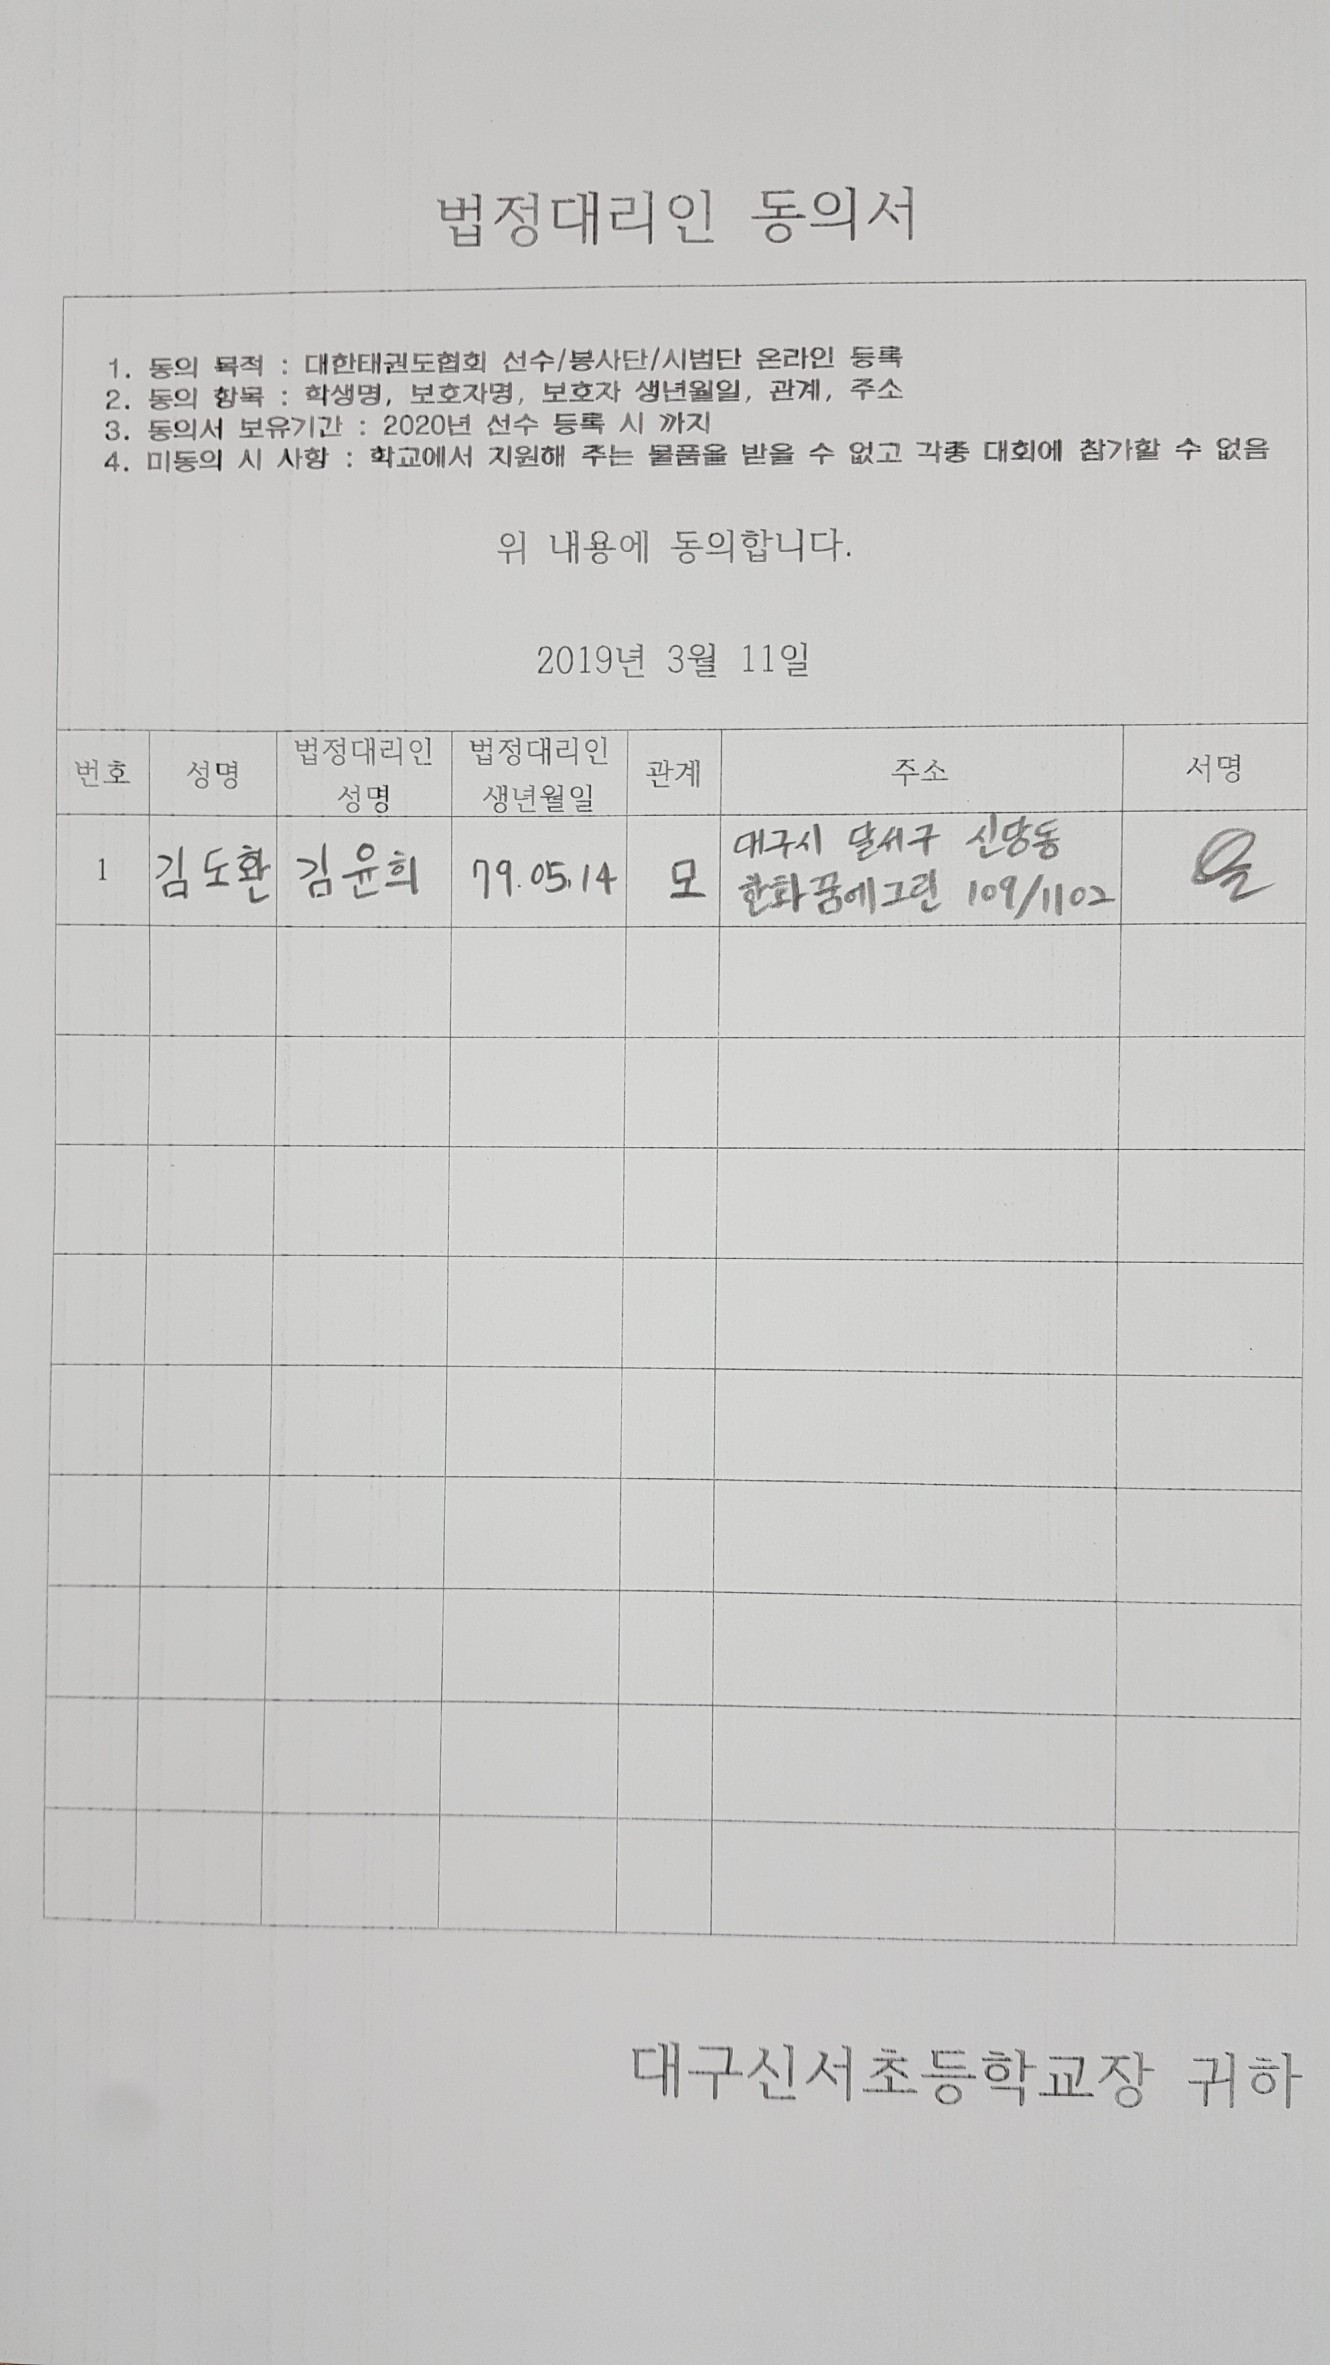 법정대리인 동의서
1. 동의 목적 : 대한태권도협회 선수/봉사단/시범단 온라인 등록
2. 동의 항목 : 학생명, 보호자명, 보호자 생년월일, 관계, 주소
3. 동의서 보유기간 : 2020년 선수 등록 시 까지
4. 미동의 시 사항 : 학교에서 지원해 주는 물품을 받을 수 없고 각종 대회에 참가할 수 없음
위 내용에 동의합니다.
2019년 3월 11일
번호 성명 법정대리인 성명 법정대리인 생년월일 관계 주소 서명
1 김도환 김윤희 79.05.14 모 대구시 달서구 신당동
한화꿈에그린 109/1102
대구신서초등학교장 귀하